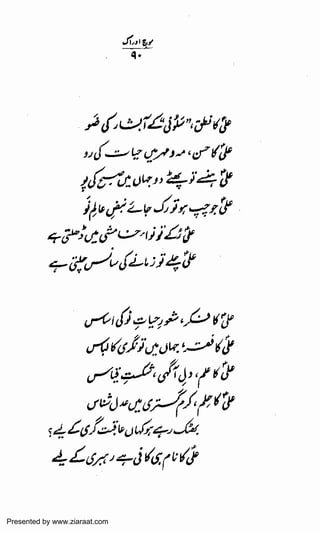 موجِ ادراک
۹۰
علیؑ کا نطق، "سلونی" کے آبشار کی ضو
علیؑ کا حسن، مہر و مہ میں حیات کی رو
علیؑ ہنسے تو دو جہاں میں صبح کی
علیؑ جو چپ ہو تو رک جائے نبضِ عالمِ نو
علیؑ رُکے تو نوا خامشی میں ڈھلتی ہے
علیؑ چلے تو زمانے کی سانس چلتی ہے
علیؑ کا فکر، شعورِ حیات نو کی اساس
علیؑ کا فقر، جہاں میں تونگری کا لباس
علیؑ کا علم، دلِ آگہی، شکستِ قیاس
علیؑ کا حلم، کڑی میں عدل شناس
بھٹک رہے ہو کہاں عاقبت گری کے لیے؟
علیؑ کا نام ہی کافی ہے رہبری کے لیے
Presented by www.ziaraat.com